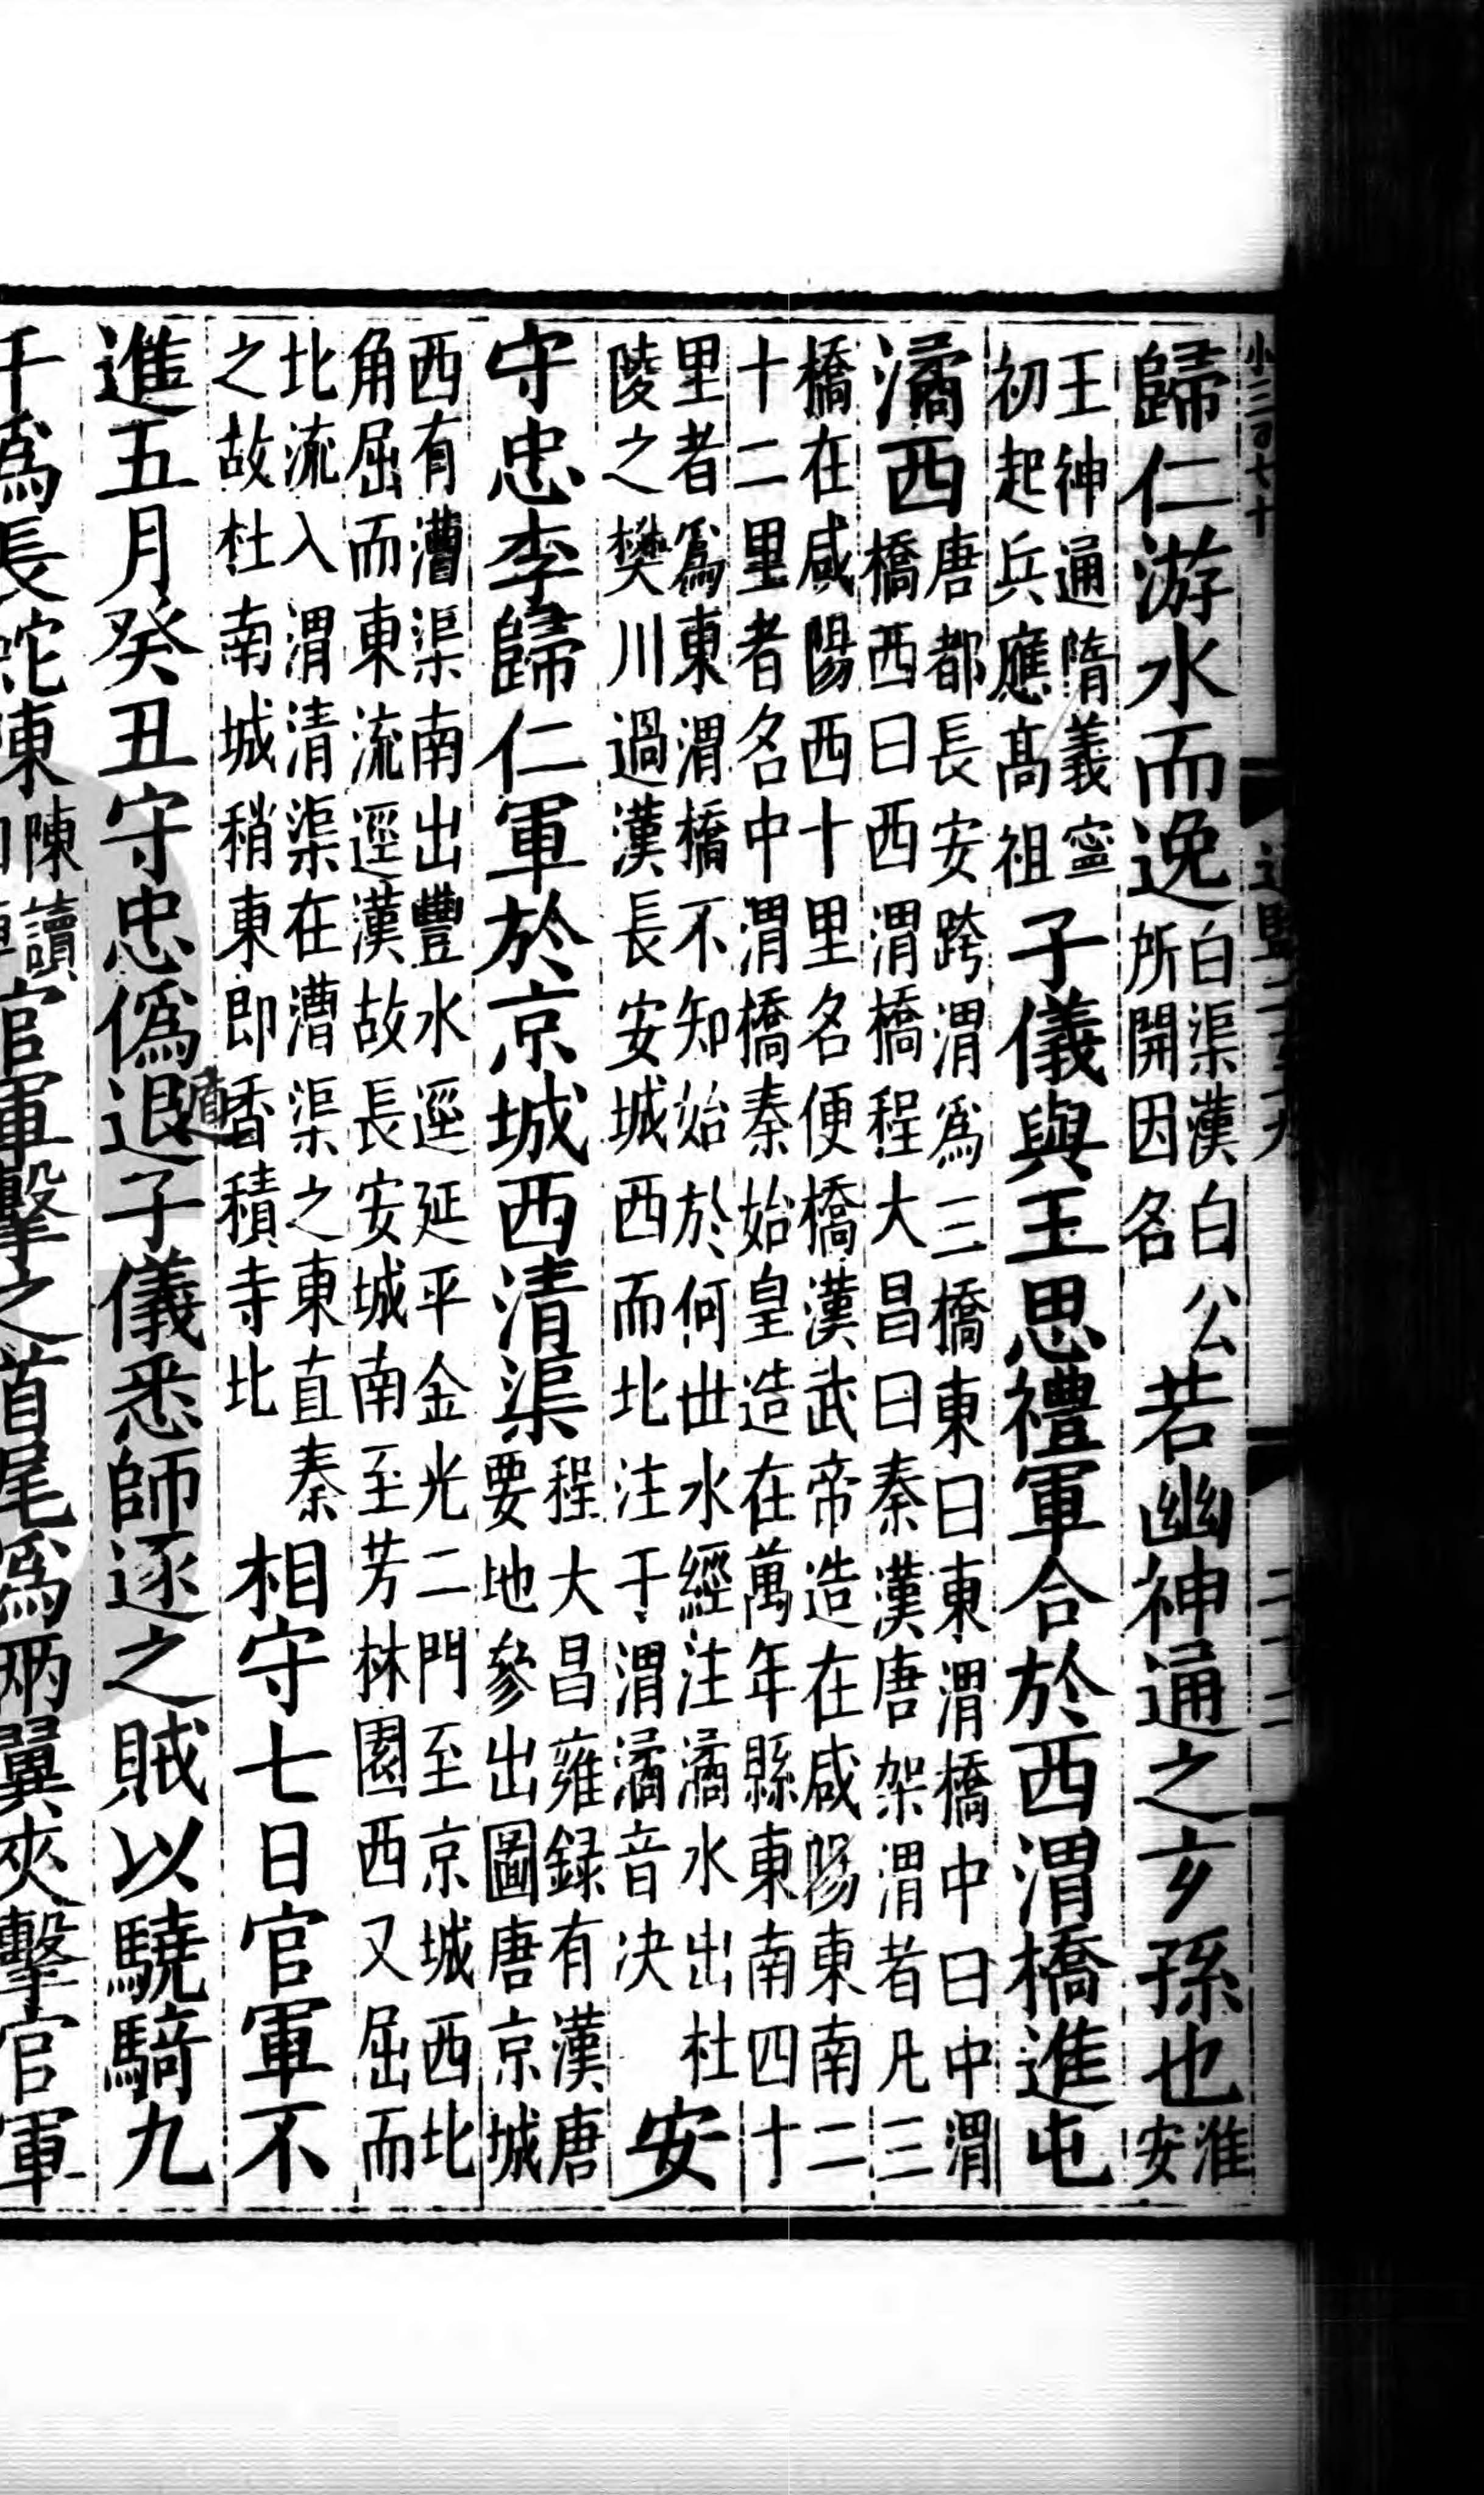 小三百七十 通鑑二百十九 二十二
歸仁游水而逸白渠漢白公所開因名若幽神通之玄孫也淮安
王神通隋義寧初起兵應髙祖子儀與王思禮軍合於西渭橋進屯
潏西唐都長安跨渭爲三橋東曰東渭橋中曰中渭橋西曰西渭橋程大昌曰秦漢唐架渭者凡三
橋在咸陽西十里名便橋漢武帝造在咸陽東南二十二里者名中渭橋秦始皇造在萬年縣東南四十
里者爲東渭橋不知始於何世水經注潏水出杜陵之樊川過漢長安城西而北注于渭潏音决安
守忠李歸仁軍於京城西清渠程大昌雍録有漢唐要地參出圖唐京城
西有漕渠南出豐水逕延平金光二門至京城西北角屈而東流逕漢故長安城南至芳林園西又屈而
北流入渭清渠在漕渠之東直秦之故杜南城稍東即香積寺北相守七日官軍不
進五月癸丑守忠僞退遁子儀悉師逐之賊以驍騎九
千爲長蛇東陳讀曰陣官軍擊之首尾爲兩翼夾擊官軍